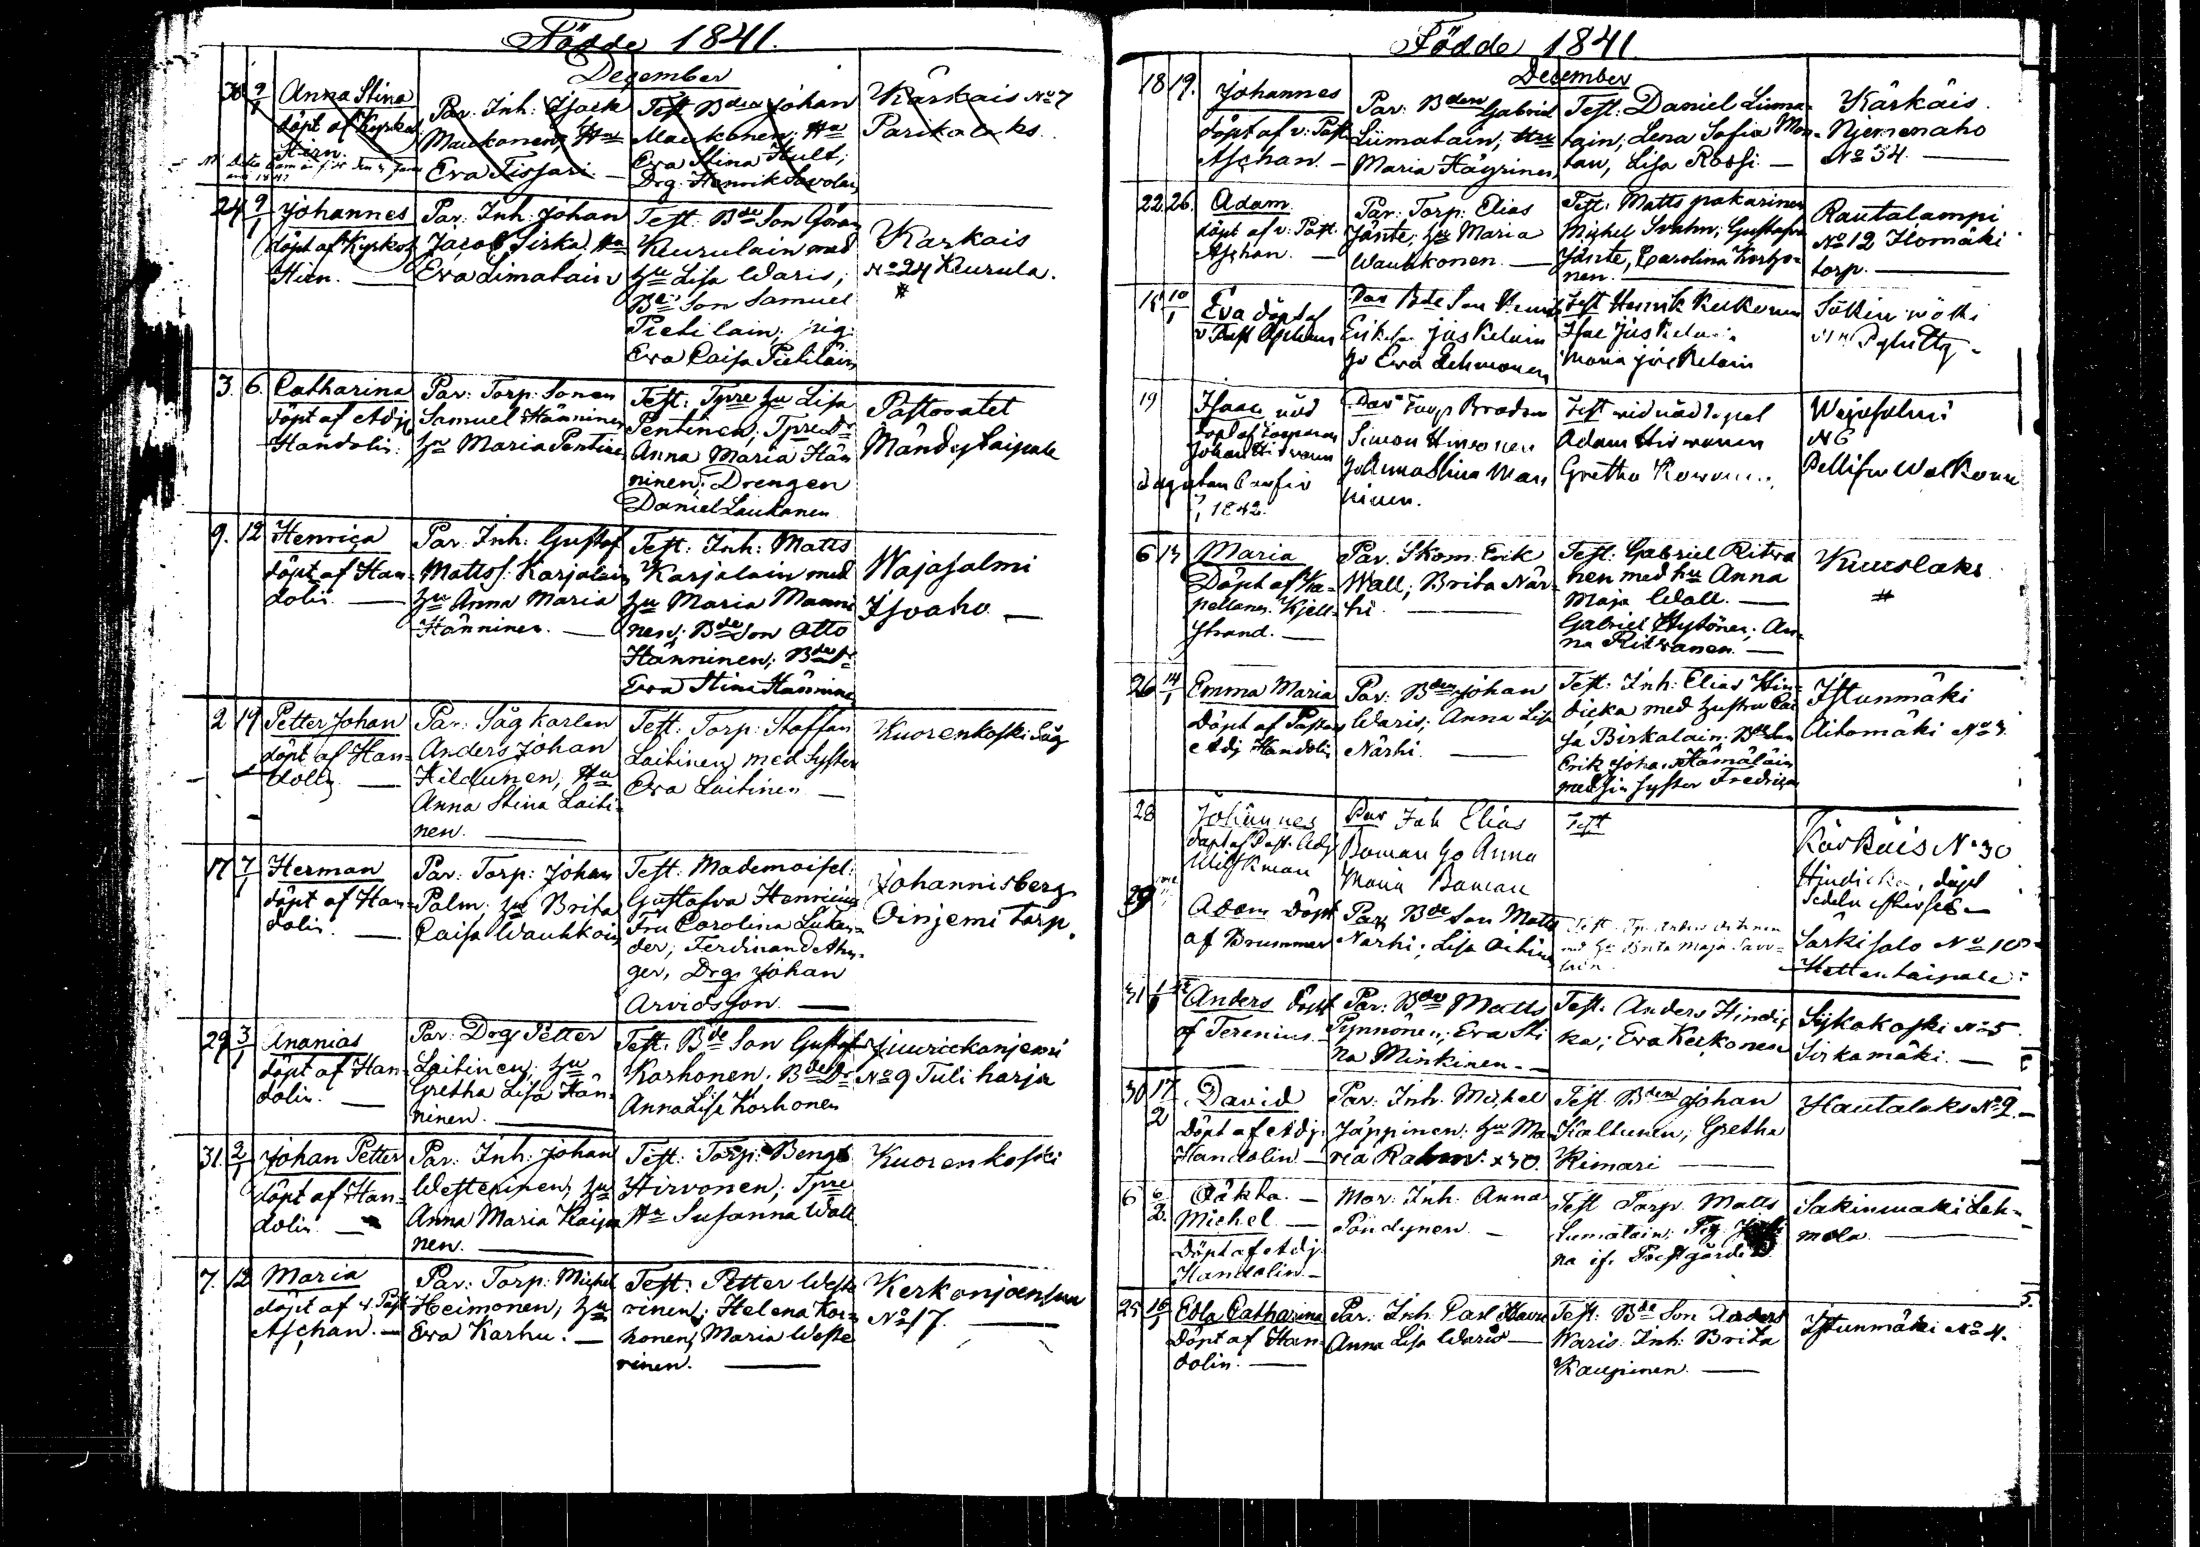 Födde 1841.
December
30 9/1 Anna Stina
döpt af Kyrkoh
Hiern.
Par. Inh. Isack
Maukonen, Hu
Eva Tissari.
Test. Bden Johan
Maukonen, Hu
Eva Stina Hult;
Drg. Henrik Savolain
Kärkais No 7
Parikalaks.
24 9/1 Johannes
döpt af Kyrkoh
Hiern.
Par. Inh. Johan
Jacob Sirka, Hu
Eva Limatain
Test. Bde Son Göran
Keurulain med
Hu Lisa Waris;
Bde Son Samuel
Pietilain; pig.
Eva Caisa Pietilain
Karkais
No 24 Keurula.
#
3. 6. Catharina
döpt af Adj
Handolin.
Par. Torp. Sonen
Samuel Hänninen
Hu Maria Pentinen
Test. Tpre Hu Lisa
Pentinen; Tpre Dr
Anna Maria Hän
ninen; Drengen
Daniel Laukanen
Pastoratet
Mändystaipale
9. 12 Henrica
döpt af Han-
dolin.
Par. Inh. Gustaf
Mattss. Karjalain
Hu Anna Maria
Hänninen.
Test. Inh. Matts
Karjalain med
Hu Maria Manni
nen; Bde Son Otto
Hänninen; Bde Dr
Eva Stina Hänninen
Wajasalmi
Isoaho
2 19 Petter Johan
döpt af Han-
dolin
Par. Såg Karlen
Anders Johan
Hildunen, Hu
Anna Stina Laiti-
nen.
Test. Torp. Staffan
Laitinen med Syster
Eva Laitinen
Kuorenkoski Såg
17 7/1 Herman
döpt af Han-
dolin.
Par. Torp. Johan
Palm. Hu Brita
Caisa Wauhkoin
Test. Mademoisel.
Gustafva Henricius
Fru Carolina Lukan-
der, Ferdinand
ger, Drg. Johan
Arvidsson.
Johannisberg
Oinjemi torp.
29 3/1 Ananias
döpt af Han-
dolin.
Par. Drg Petter
Laitinen, Hu
Gretha Lisa Hän-
ninen.
Test. Bde Son Gustaf
Korhonen, Bde Dr
Anna Lisa Korhonen
No 9 Tuliharja
31. 2/1 Johan Petter
döpt af Han-
dolin.
Par. Inh. Johan
Westerinen, Hu
Anna Maria Kaipa
nen.
Test. Torp. Bengt
Hirvonen; Tpre
Hu Susanna Wall
Kuorenkoski
7. 12 Maria
döpt af v. Past
Aschan.
Par. Torp. Michel
Heimonen, Hu
Eva Karhu.
Test. Petter Weste
rinen; Helena Kor-
honen, Maria Weste
rinen.
Kerkonjoensuu
No 17.
Födde 1841
December
18 19. Johannes
döpt af v. Past
Aschan.
Par. Bden Gabriel
Liimatain, Hu
Maria Häyrinen
Test. Daniel Liima-
tain, Lena Sofia Mon-
tan, Lisa Rossi.
Kärkäis.
Njemenaho
No 34.
22. 26. Adam
döpt af v. Past.
Aschan.
Par. Torp. Elias
Jänte, Hu Maria
Wauhkonen.
Test. Matts pakarinen
Michel Svahn; Gustafva
Jänte, Carolina Korho-
nen.
Rautalampi
No 12 Ilomäki
torp.
15 10/1 Eva döpt af
v Past Aschan
Par Bde Son
Eriks. Jäskelain
Ho Eva Lehmonen
Test Henrik Kukonen
Isac Jäskelain
Maria Jäskelain
19 Isaac nöd
döpt af
Johan Hirvonen
7/1 1842.
Simon Hirvonen
Ho Anna Stina Man
ninen.
Test vid nöddopet
Adam Hirvonen
Gretha
Wajasalmi
N 6
6 13 Maria
Döpt af Ka-
pellanen Kjell-
strand.
Par. Skom. Erik
Wall; Brita När-
hi.
Test. Gabriel Ritva
nen med hu Anna
Maja Wall.
Gabriel Hytönen; An-
na Ritvanen.
Kuuslaks
#
26 14/1 Emma Maria
Döpt af Pastors
Adj Handolin
Par. Bden Johan
Waris; Anna Lisa
Närhi.
Test. Inh. Elias Hin-
dicka med hustru Cai
sa Pirkalain. Bde Son
Erik Joha. Hämäläin
med sin syster Fredrica
Istunmäki
Aitomäki No 3
28 Johannes
döpt af Past. Adj
Par Inh Elias
Boman Ho Anna
Maria Boman
Test
Kärkäis No 30
Hindicka, döpt
29 Adam Döpt
af Brummer
Par. Bde Son Matts
Närhi; Lisa
med Hu Brita Maja Savo-
lain
Särkisalo No 10
Hettentaipale
31 Anders döpt
af Terenius.
Par. Bden Matts
Pynnönen; Eva Sti
na Minkinen.
Test. Anders Hindic
ka; Eva Kerkonen
Sijkakoski No 5
Sirkamäki.
30 17/2 David
Döpt af Adj.
Handolin
Par. Inh. Michel
Jäppinen: Hu Ma
ria Rahm. x30
Test. Bden Johan
Kaltunen, Gretha
Kimari
Hautalaks No 2.
6 6/2. Oäkta
Michel.
Döpt af Adj.
Handolin
Mor. Inh. Anna
Pöndynen.
Test Torp. Matts
Liimatain, Pig
na if. Prestgården.
Sakinmäki Leh-
mola
25 16/1 Edla Catharina
Döpt af Han-
dolin.
Par. Inh. Carl
Anna Lisa Waris
Test. Bde Son Anders
Waris. Inh. Brita
Kaupinen.
Istunmäki No 4.